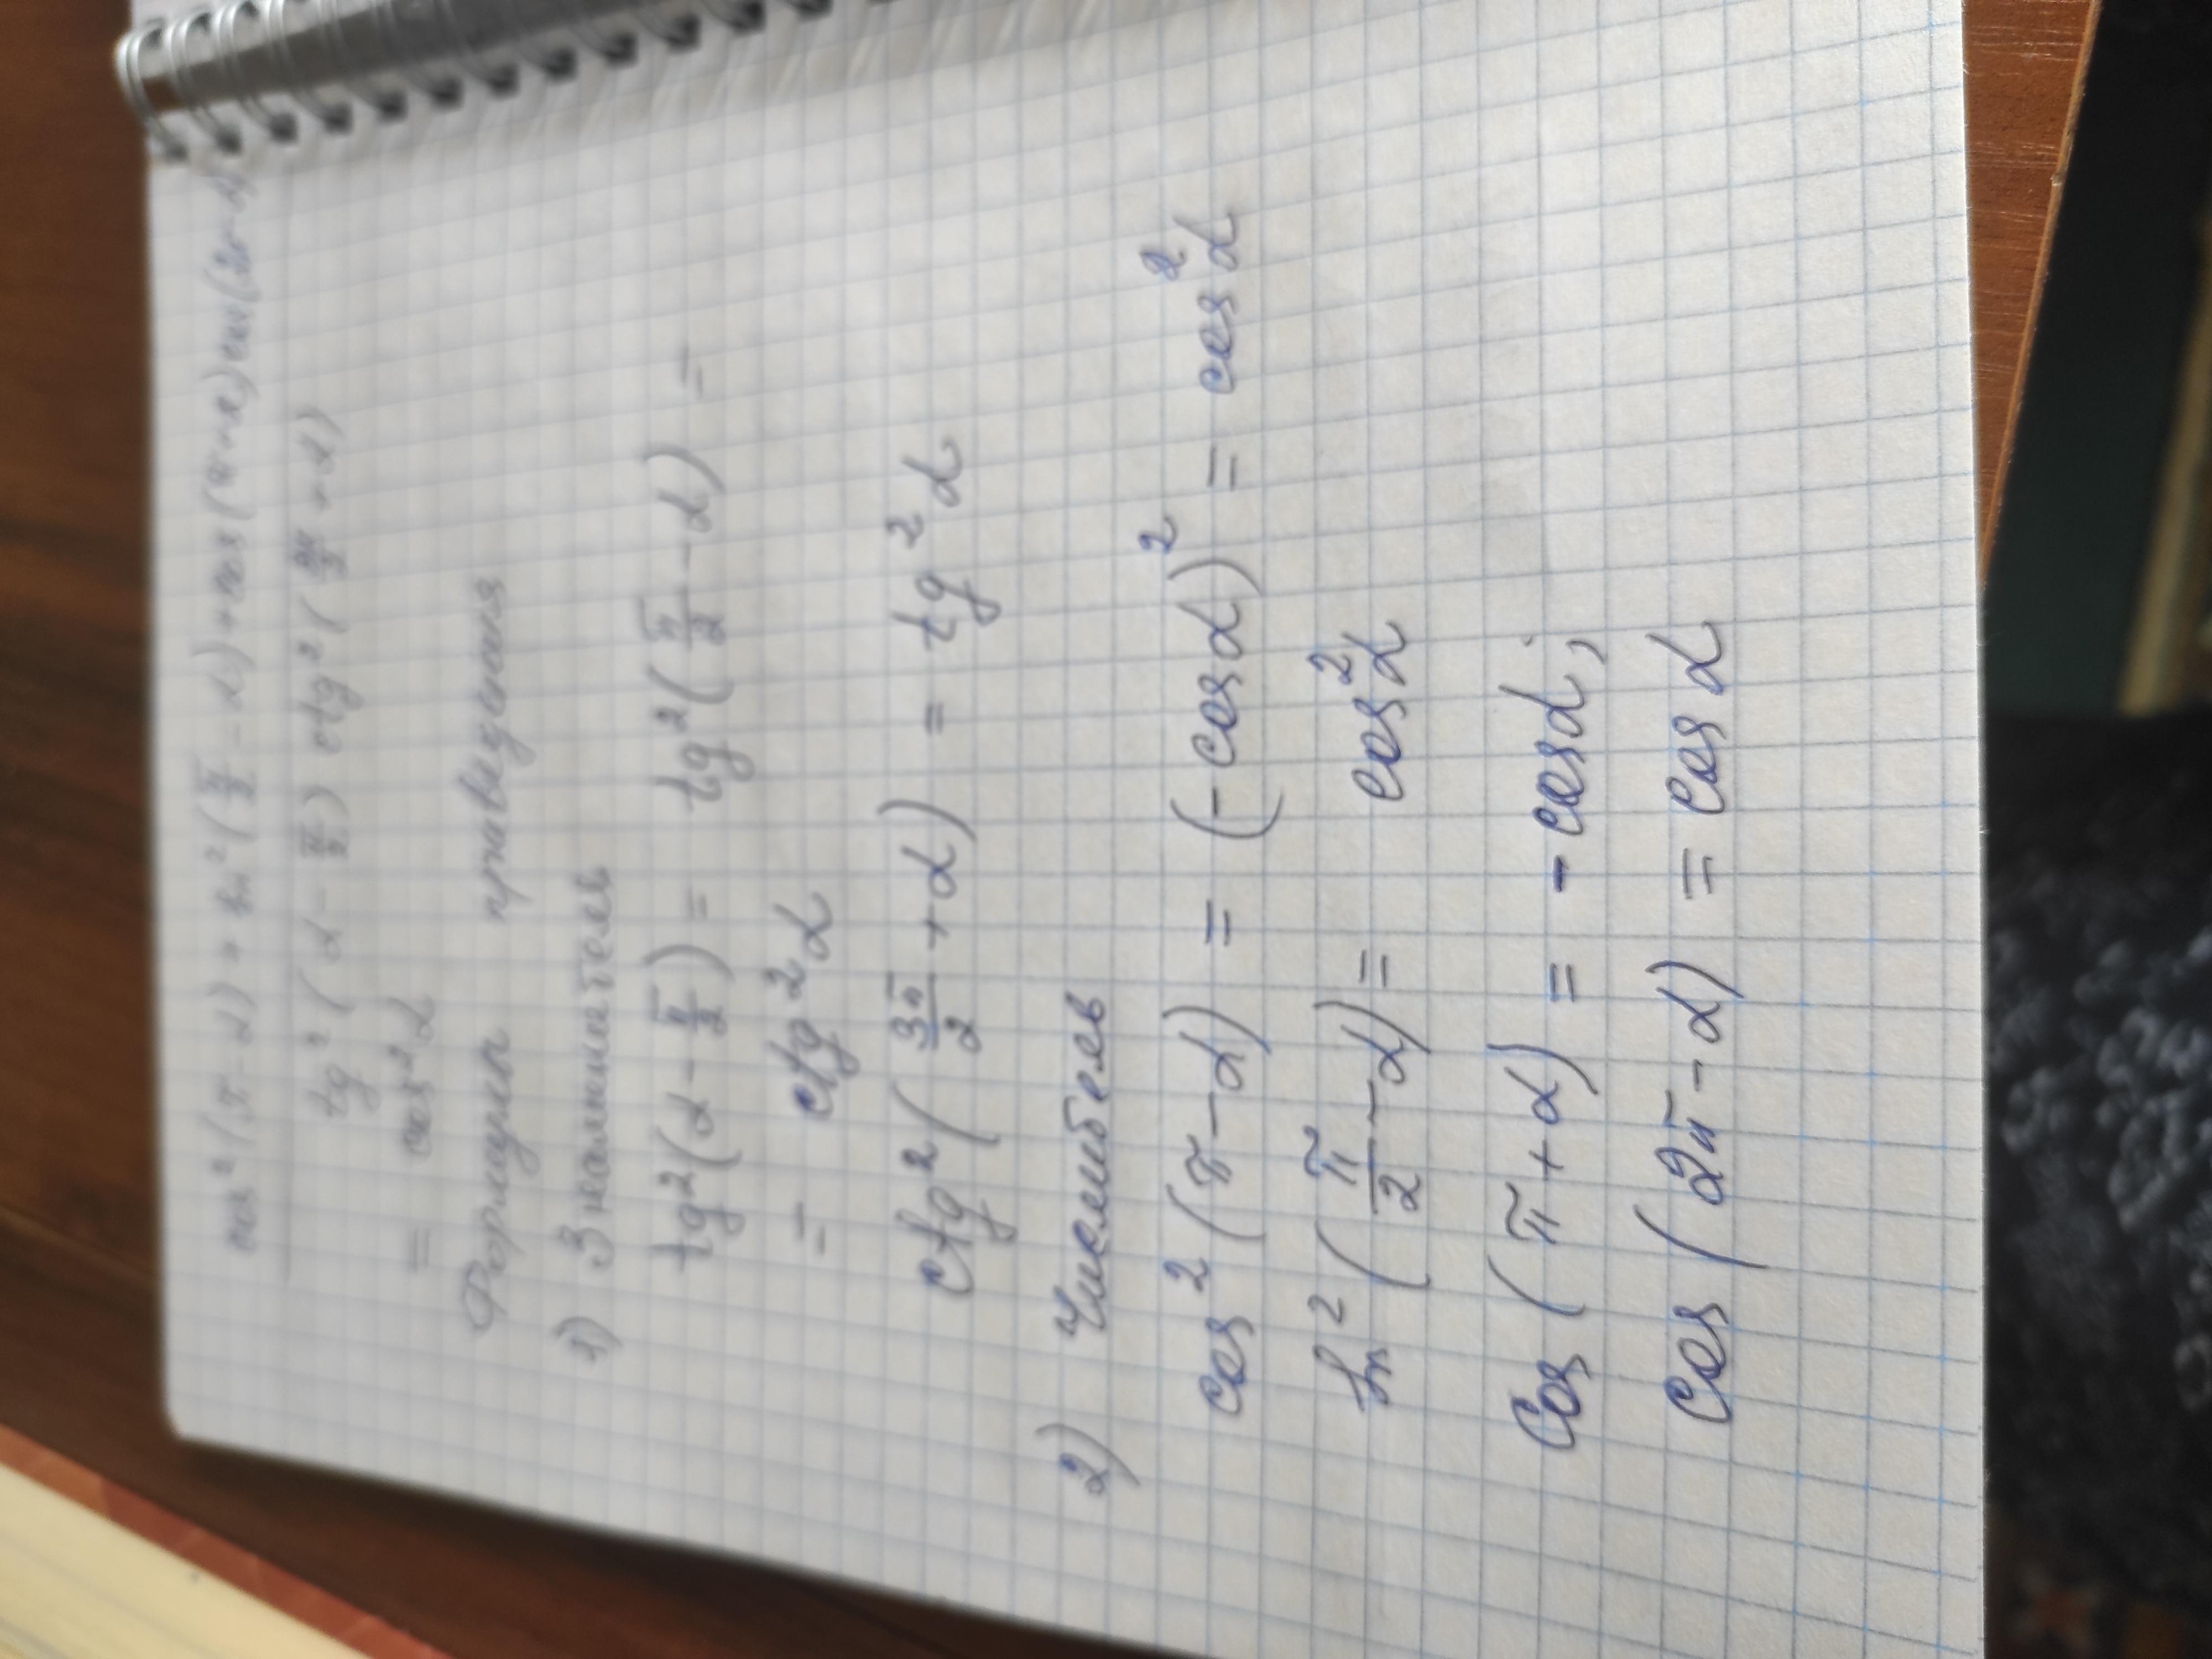 cos²(π-α)+sin²(π/2-α)+cos(π+α)cos(2π-α)
tg²(α-π/2)ctg²(3π/2+α)
= cos²α
Формулы приведения
1) Знаменатель
tg²(α-π/2)= tg²(π/2-α) =
= ctg²α
ctg²(3π/2+α) = tg²α
2) Числитель
cos²(π-α) = (-cosα)² = cos²α
sin²(π/2-α)= cos²α
Cos(π+α) = -cosα;
Cos(2π-α) = cosα